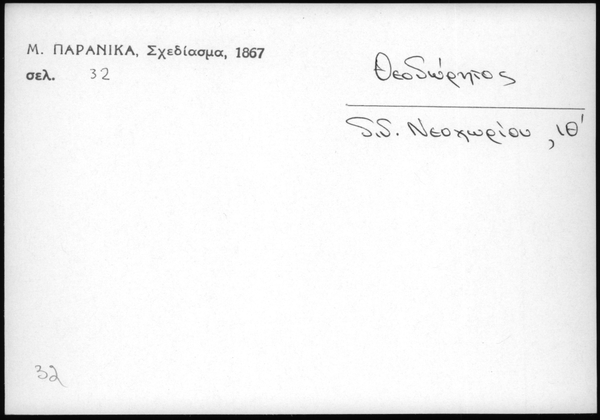 Μ. ΠΑΡΑΝΙΚΑ, Σχεδίασμα, 1867
σελ. 32
Θεοδώρητος
δ.δ. Νεοχωρίου, ιθ'
32